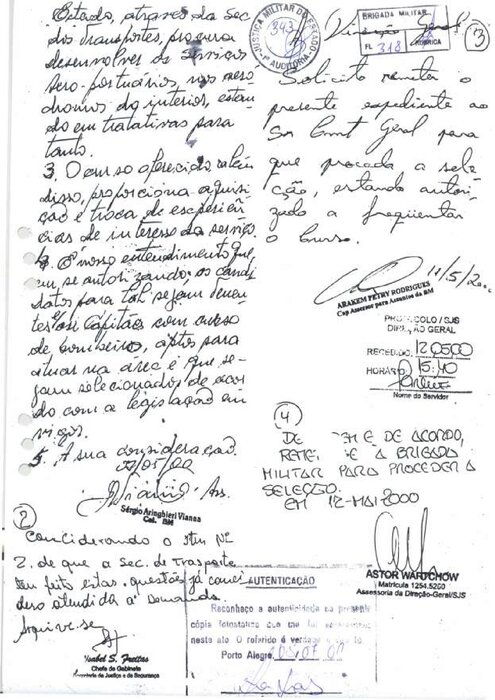 Estado, através da Sec.
dos Transportes, procura
desenvolver os serviços
aero-portuários, nos aeró
dromos do interior, estan
do em tratativas para
tanto.
3. O curso oferecido, além
disso, proporciona aquisi
ção e troca de experiên
cias de interesse do serviço.
4. É nosso entendimento que,
em se autorizando, os candi
datos para tal, sejam tenen
tes e/ou Capitães com curso
de bombeiro, aptos para
atuar na área e que se
jam selecionados de acor
do com a legislação em
vigor.
5. À sua consideração.
05/00
Sérgio Aringhieri Vianna
Cel. BM
2
Considerando o item Nº
2. de que a Sec. de Trasporte
tem feito estas questões já consi
dero atendida a demanda.
Arquive-se
Ysabel S. Freitas
Chefe de Gabinete
Secretaria da Justiça e da Segurança
JUSTIÇA MILITAR DO ESTADO
343
1ª AUDITORIA
BRIGADA MILITAR
FL 318
RUBRICA
Geral
3
Solicito remeter o
presente expediente ao
Sr Cmt Geral para
que proceda a sele
ção, estando autori
zado a freqüentar
o Curso.
11/5/2
ARAKEM PETRY RODRIGUES
Cap Assessor para Assuntos da BM
PROTOCOLO/SJS
DIREÇÃO GERAL
RECEBIDO: 120500
HORÁRIO: 15:40
Nome do Servidor
4
DE E DE ACORDO,
A BRIGADA
MILITAR PARA PROCEDER A
SELEÇÃO.
EM 12-MAI 2000
ASTOR WARUCHOW
Matrícula 1254.5260
Assessoria da Direção-Geral/SJS
AUTENTICAÇÃO
Reconheço a autenticidade na presente
cópia fotostática que me foi
neste ato O referido é verdade
Porto Alegre, 07 00